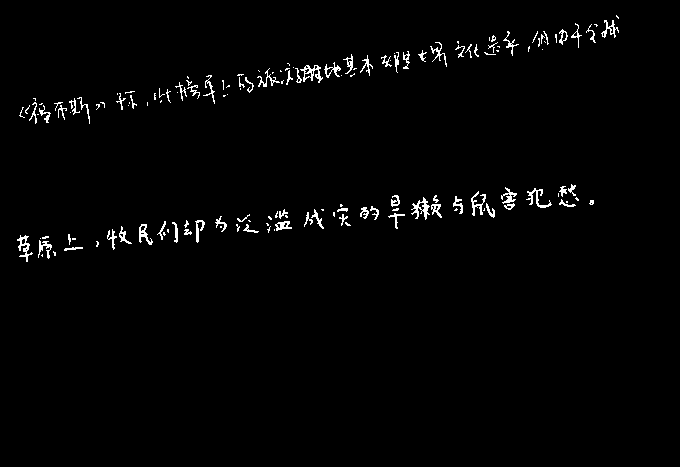 《福布斯》称，此榜单上的旅游胜地基本都是世界文化遗产，但由于全球
草原上，牧民们却为泛滥成灾的旱獭与鼠害犯愁。